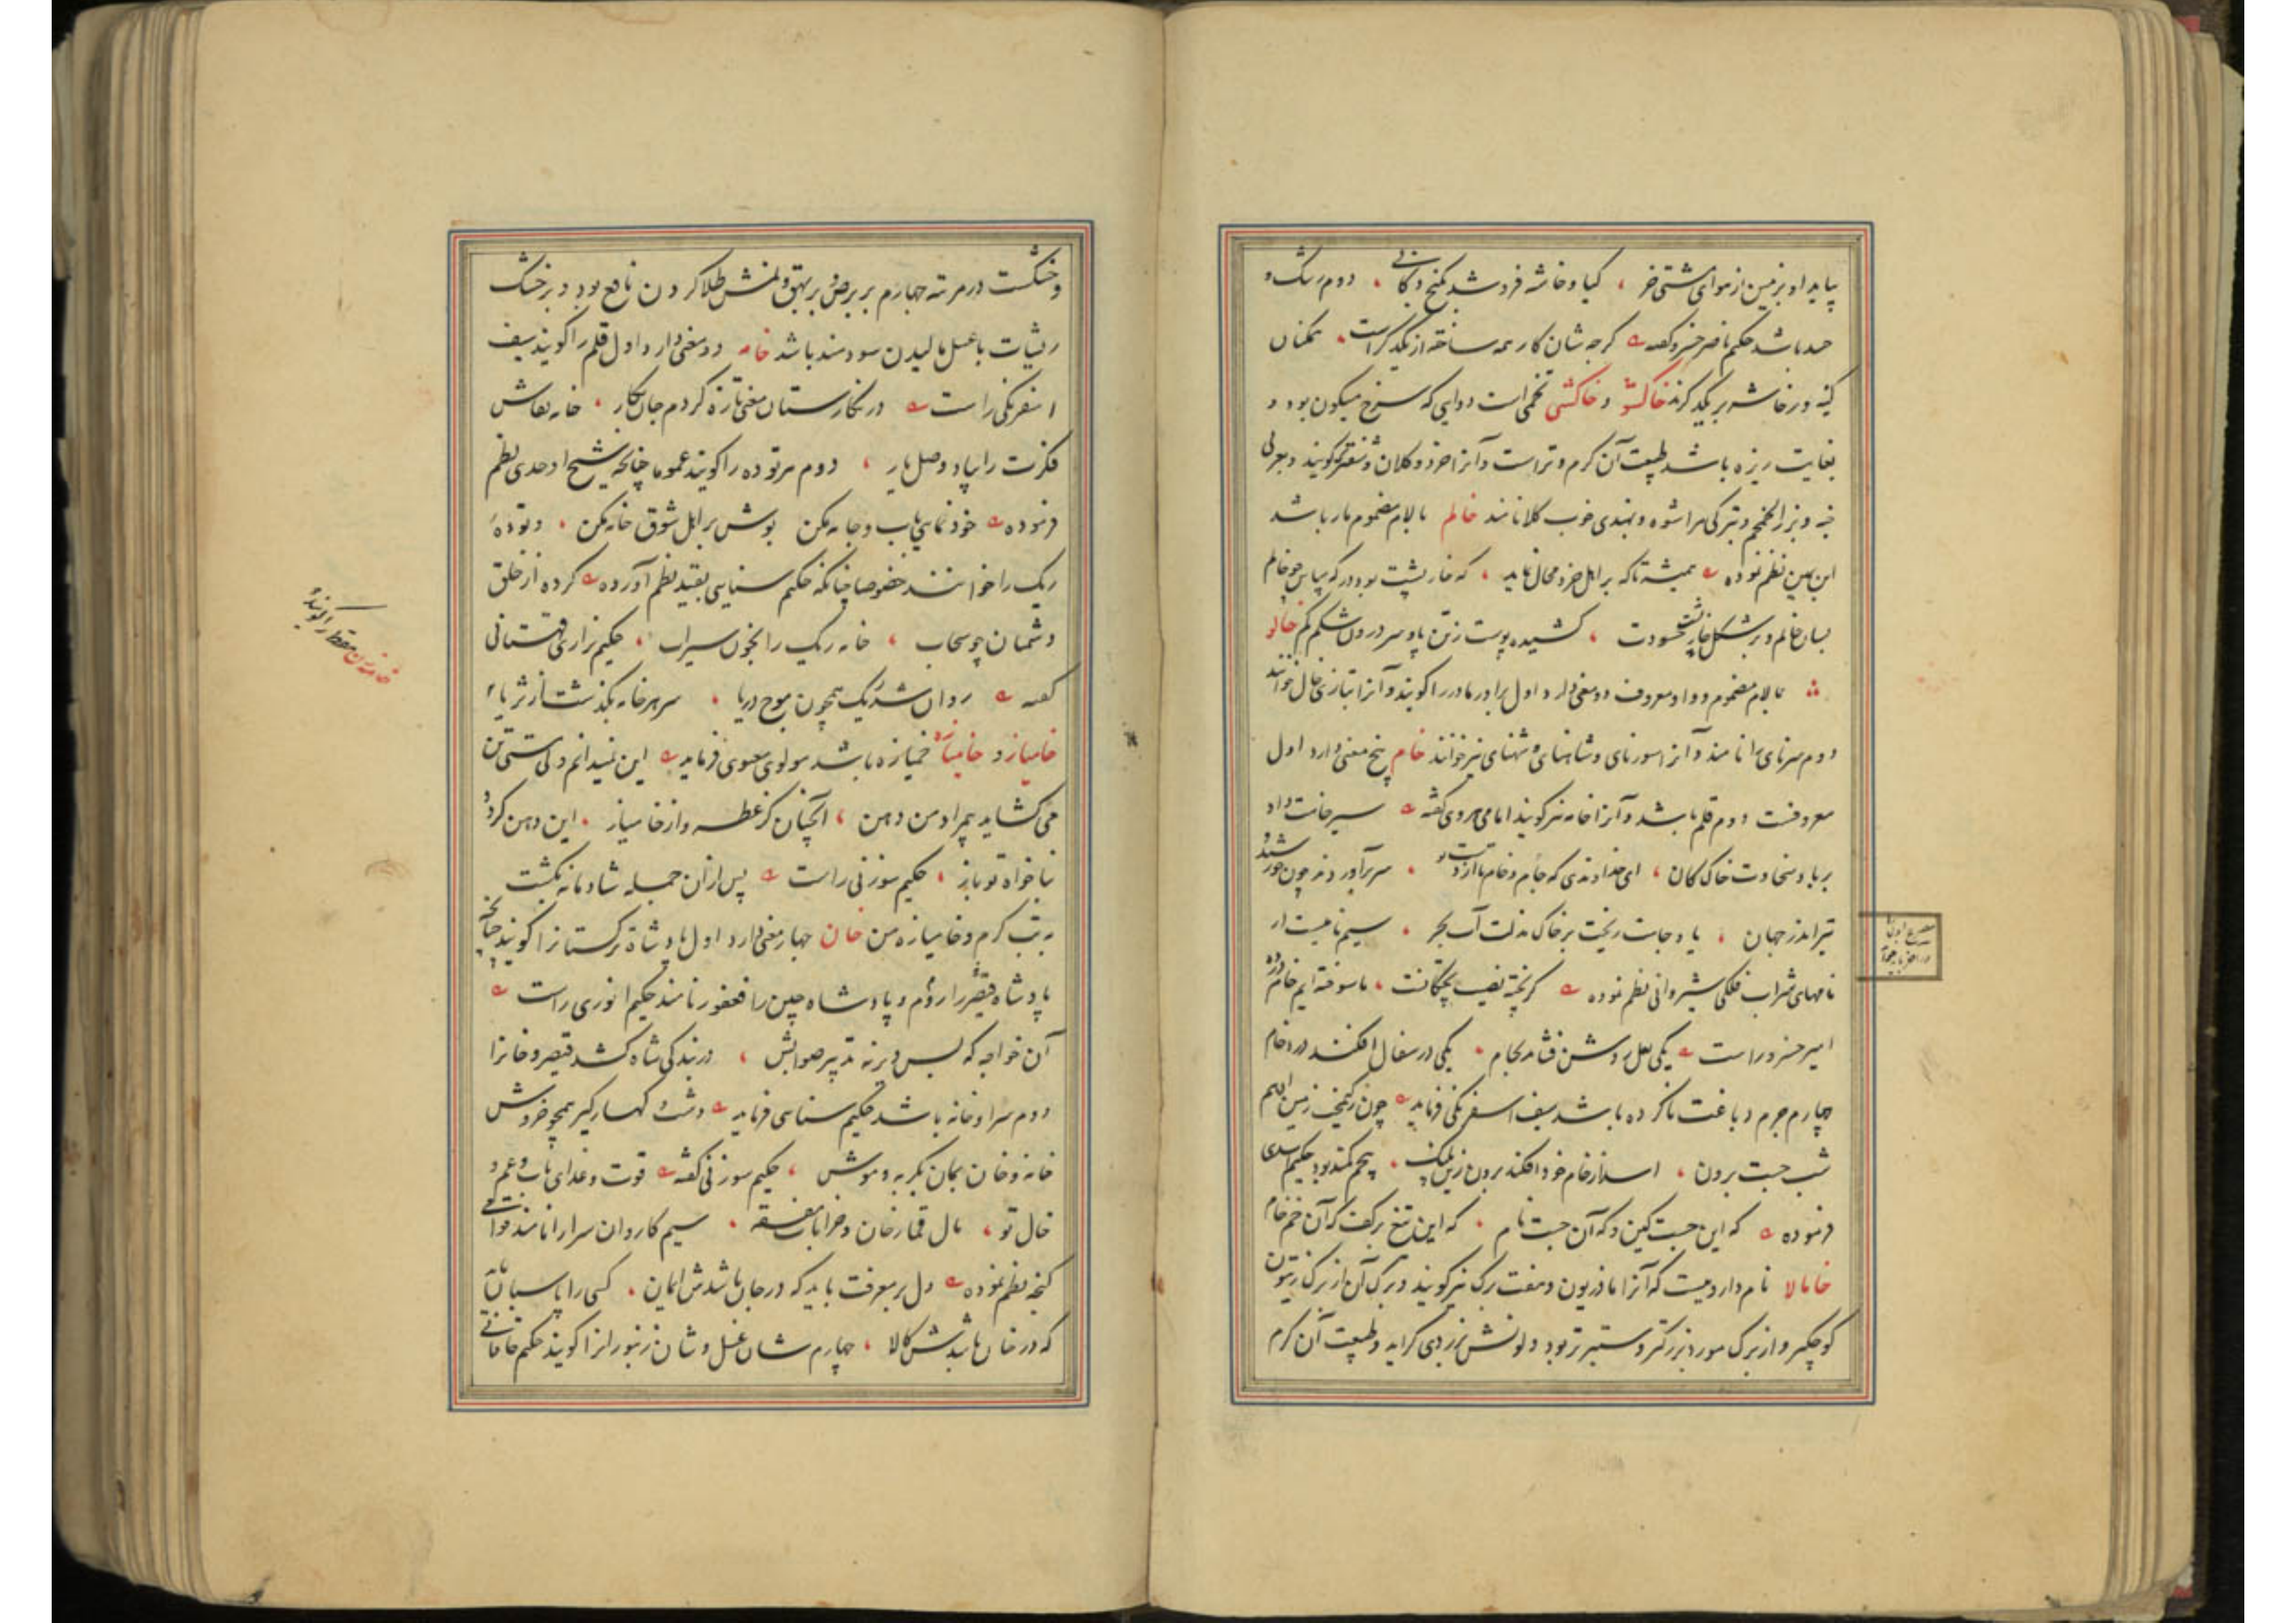 پاید او بزمین از موای شتی خر ، کیا و خاشه فروشد بکنج و کانی ، دوم رشک و
حسد باشد حکیم ناصر خسرو گفته کرچه شان کار همه ساخته از یکدیگراست همکنان
کینه ور خاشه بر یکدیگرند خاکشو و خاکشی تخمی است دوایی که سرخ میکون بود و
بغایت ریزه باشد طبیعت آن گرم و تراست و آنرا خرد و کلان و شفترک گویند و بعربی
خبه و بزر الخمخم و بترکی سراشوه و بهندی خوب کلان نامند خالم با لام مضموم مار باشد
ابن یمین نظم نموده همیشه تا که بر اهل خرد محال نماید ، که خارپشت بود در که سپاس چو خام
بسان خالم و بر شکل خارپشت حسودت ، کشیده پوست زتن پا و سر درون شکم کم خالو
با لام مضموم و واو معروف دو معنی دارد اول برادر مادر را گویند و آنرا بتازی خال خوانند
دوم سرنای را نامند و آنرا سورنای و شاهنای و شهنای نیز خوانند خام پنج معنی دارد اول
معروفست دوم قلم باشد و آنرا خامه نیز گویند امامی هروی گفته سیر خامت داد
بر باد سخاوت خاک کان ، ای خداوندی که جام و خام با از دست تو ، سر برآورد ند چون خورشید و
تیر اندر جهان ، یا و جامت ریخت بر خاک مذلت آب بحر ، سیم نامیست از
نامهای شراب فلکی شیروانی نظم نموده گر پخته نصیب پختگانست ، ما سوخته ایم خام درده
امیر خسرو راست یکی لعل روشن فشاند بجام ، یکی در سفال افکند درد خام
چهارم جرم دباغت ناکرده باشد سیف اسفرنگی فرماید چون زکیمخت زمین ادهم
شب جست برون ، اسد از خام خود افکند برون زین پلنگ ، پنجم کمند بود حکیم اسدی
فرموده که این جست کین و که آن جست نام ، که این تیغ برکف که آن خم خام
خامالا نام داروییست که آنرا مازریون و هفت برگ نیز گویند و برگ آن از برگ زیتون
کوچکتر و از برگ مورد بزرگتر و ستبرتر بود و لونش بزردی گراید و طبیعت آن گرم
و خشکست در مرتبه چهارم بر برص و بر بهق و نمش طلا کردن نافع بود و بر خشک
ریشات با عسل مالیدن سودمند باشد خامه دو معنی دارد اول قلم را گویند سیف
اسفرنکی راست در نکارستان معنی تازه کردم جان نکار ، خامه نقاش
فکرت را بیاد وصل یار ، دوم هر توده را گویند عموما چنانچه شیخ اوحدی نظم
فرموده خود نمایی بباب و جامه مکن بوش بر اهل شوق خامه مکن ، و توده
ریک را خوانند خصوصا چنانکه حکیم سنایی بقید نظم آورده کرده از خلق
دشمنان چو سحاب ، خامه ریک را بخون سیراب ، حکیم نزاری قهستانی
گفته روان شد ریک همچون موج دریا ، سر هر خامه بگذشت از ثریا
خامیاز و خامیازه خمیازه باشد مولوی معنوی فرماید این نمیدانم ولی مستی تن
می گشاید بیمراد من دهن ، آنچنان کز عطسه و از خامیاز ، این دهن گردد
بناخواه تو باز ، حکیم سوزنی راست پس از آن جمله شادمانه بکشت
به تب گرم و خامیازه من خان چهار معنی دارد اول پادشاه ترکستانرا گویند چنانچه
پادشاه قیصر را روم و پادشاه چین را فغفور نامند حکیم انوری راست
آن خواجه که بس دیر نه تدبیر صوابش ، در بندگی شاه کشد قیصر و خانرا
دوم سرا و خانه باشد حکیم سنایی فرماید دشت و کهسار گیر همچو خروش
خانه و خان بمان بگربه و موش ، حکیم سوزنی گفته قوت و غذای باب و عم و
خال تو ، مال قمار خان و خرابات مفسقه ، سیم کاروان سرا را نامند خواجه
گنجه نظم نموده دل پر معرفت باید که در جان باشدش ایمان ، کسی را پاسبان باید
که در خان باشدش کالا ، چهارم شان عسل و شان زنبورانرا گویند حکیم خاقانی